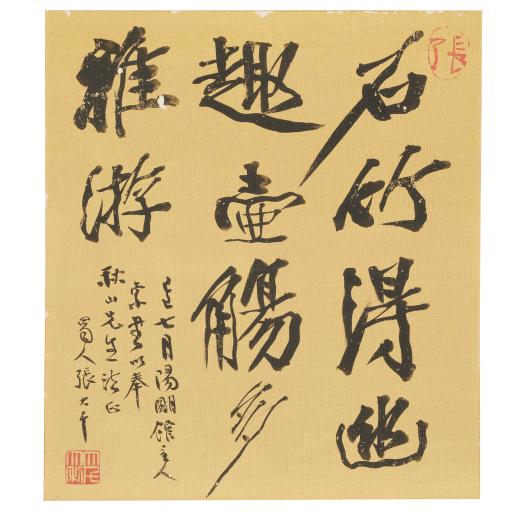 石竹得幽
趣壺觴多
雅游
七月陽朙館主人
索書以奉
秋山先生法正
蜀人張大千
張